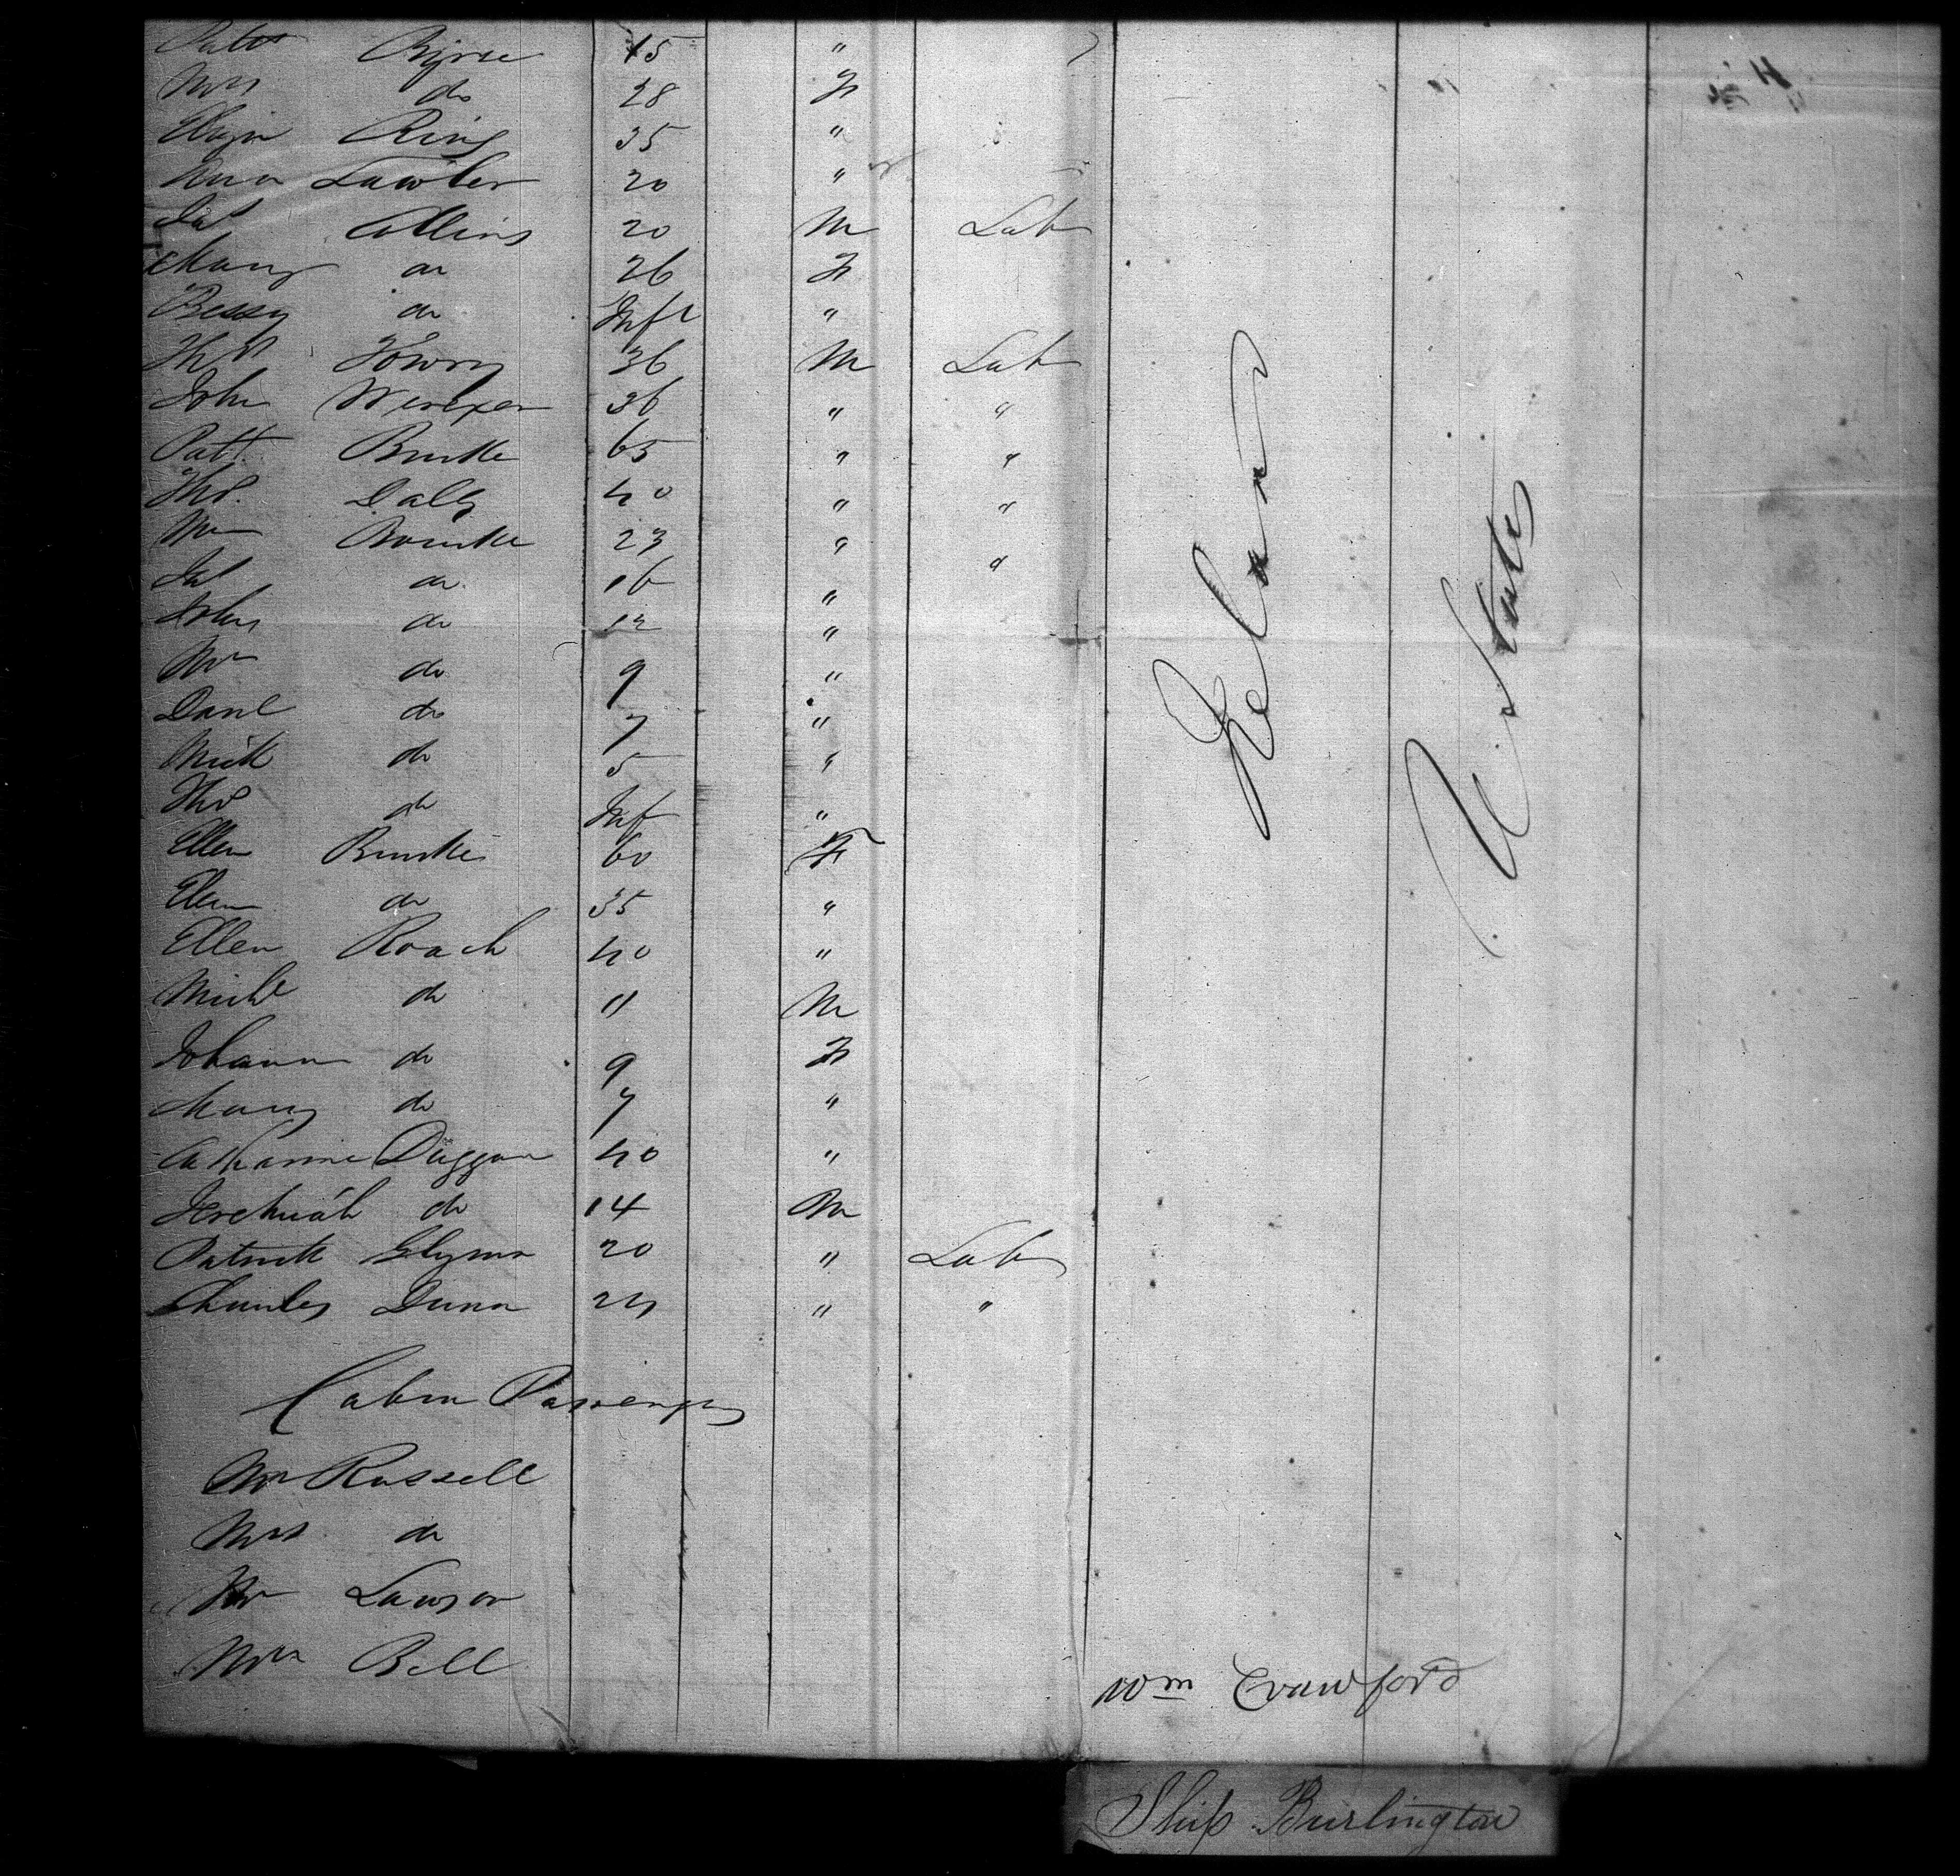 Patk Byrne 15 "
Mrs do 28 F
Eliza Ring 35 "
Ann Lawler 20 "
Jas Collins 20 M Lab
Mary do 26 F
Bessy do Inft "
Thos 36 M Lab
John 36 " "
Patt Burke 65 " "
Thos. Daly 40 " "
Wm Bourke 23 " "
Jas do 16 "
John do 12 "
Wm do 9 "
Danl do 7 "
Mick do 5 "
Thos do Inf "
Ellen Burke 60 F
Ellen do 35 "
Ellen Roach 40 "
Michl do 11 M
Johanna do 9 F
Mary do 7 "
Catharine Duggan 40 "
Jeremiah do 14 M
Patrick Glynn 20 " Lab
Charles Dunn 24 " "
Ireland
U. States
Cabin Passengers
Mr Russell
Mrs do
Mr Lawson
Mrs Bell
Wm Crawford
Ship Burlington